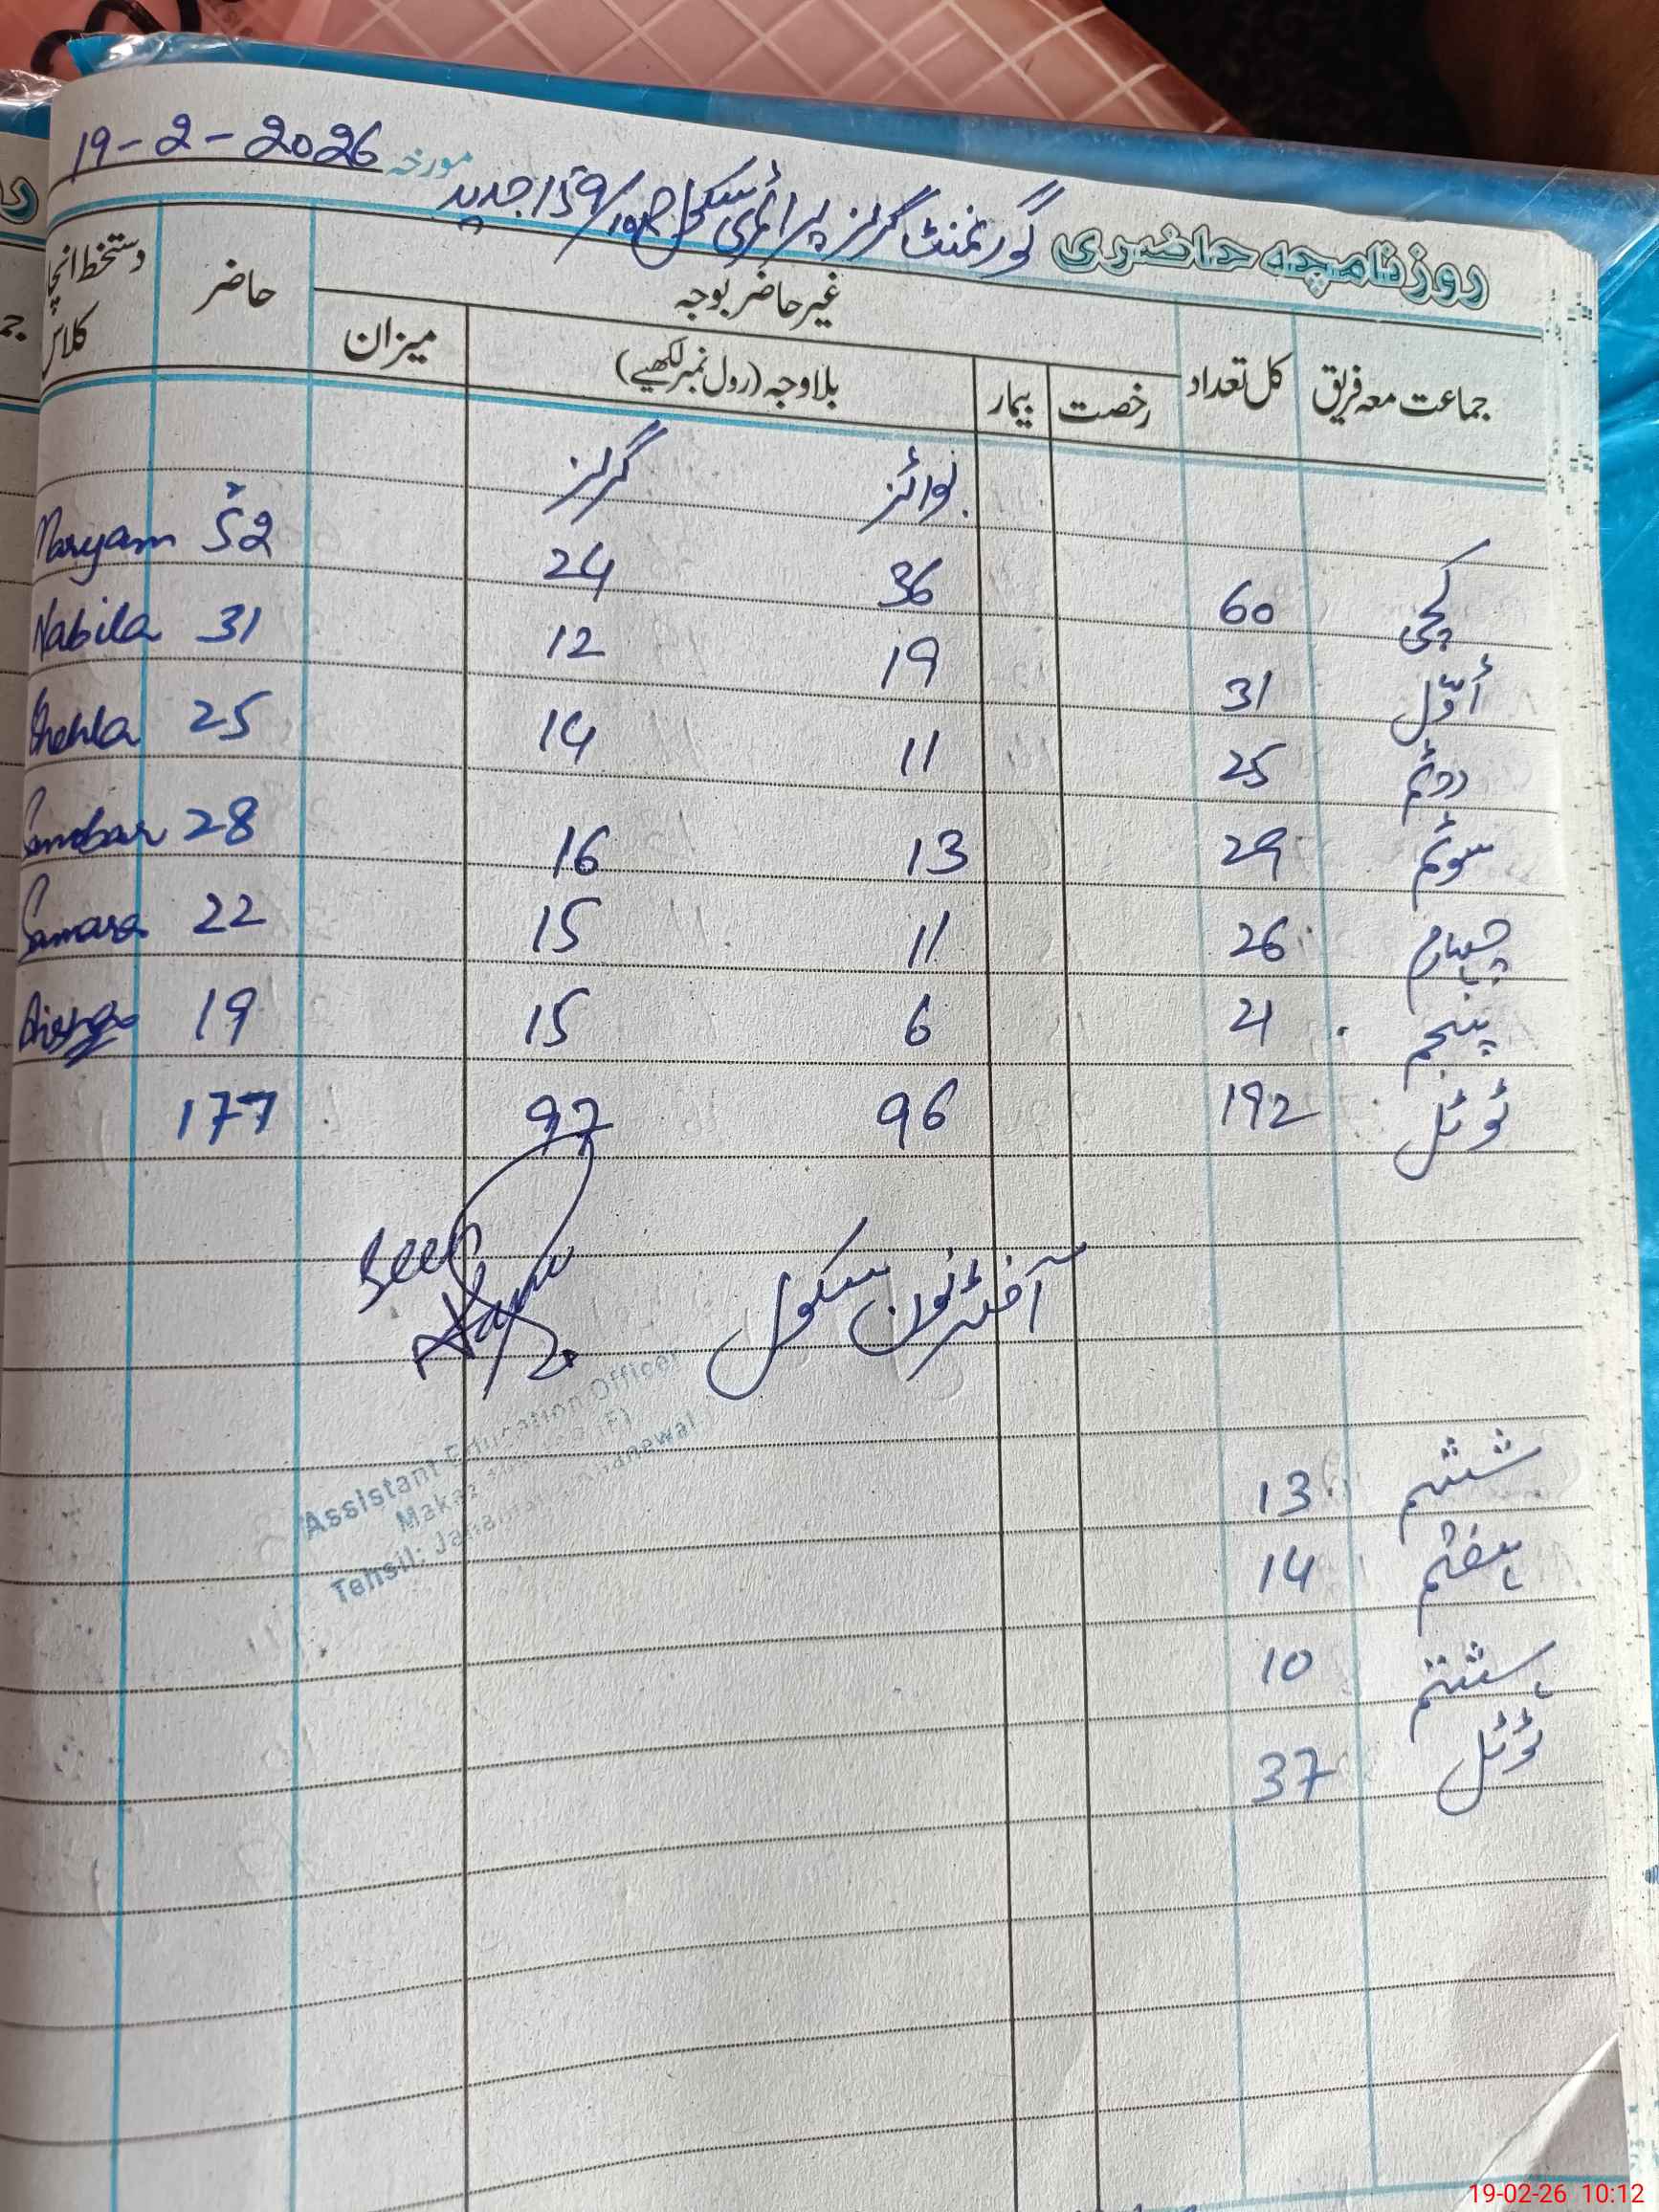 مورخہ 19-2-2026
روزنامچہ حاضری گورنمنٹ گرلز پرائمری سکول 159/10R جدید
جماعت معہ فریق کل تعداد غیر حاضر بوجہ حاضر دستخط انچا
رخصت بیمار بلاوجہ (رول نمبر لکھیے) میزان کلاس
بوائز گرلز
کچی 60 36 24 52 Maryam
اوّل 31 19 12 31 Nabila
دوئم 25 11 14 25 Shehla
سوئم 29 13 16 28
چہارم 26 11 15 22 Samara
پنجم 21 6 15 19
ٹوٹل 192 96 97 177
Seen
آفٹرنون سکول
Assistant Education Officer
(F)
Tehsil:
ششم 13
ہفتم 14
ہشتم 10
ٹوٹل 37
19-02-26 10:12